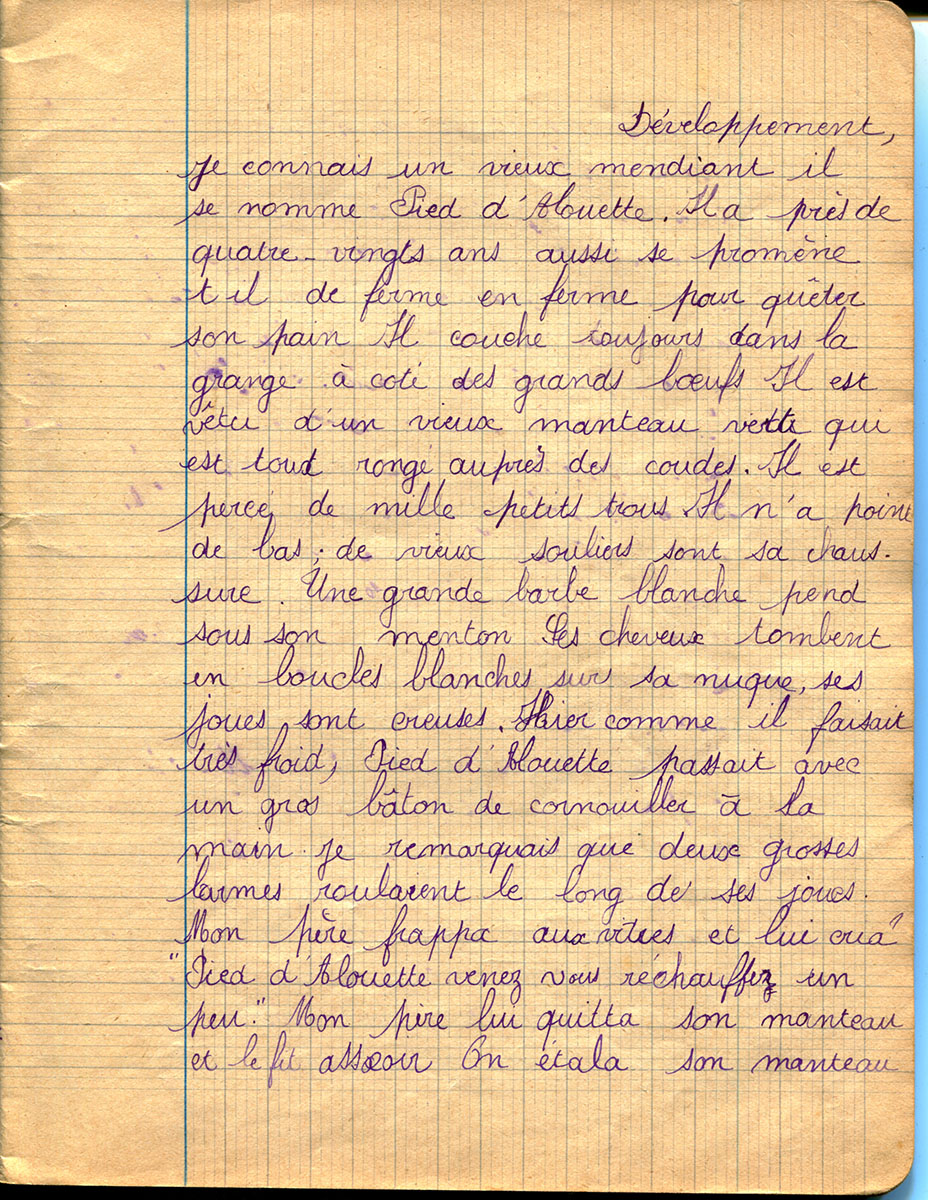 Développement,
Je connais un vieux mendiant il
se nomme Pied d'Alouette. Il a près de
quatre-vingts ans aussi se promène
t il de ferme en ferme pour quêter
son pain Il couche toujours dans la
grange à coté des grands bœufs Il est
vêtu d'un vieux manteau vert qui
est tout rongé auprès des coudes. Il est
percé de mille petits trous Il n'a point
de bas ; de vieux souliers sont sa chaus-
sure. Une grande barbe blanche pend
sous son menton Ses cheveux tombent
en boucles blanches sur sa nuque, ses
joues sont creuses. Hier comme il faisait
très froid, Pied d'Alouette passait avec
un gros bâton de cornouiller à la
main. Je remarquais que deux grosses
larmes roulaient le long de ses joues.
Mon père frappa aux vitres et lui cria
"Pied d'Alouette venez vous réchauffez un
peu." Mon père lui quitta son manteau
et le fit asseoir On étala son manteau